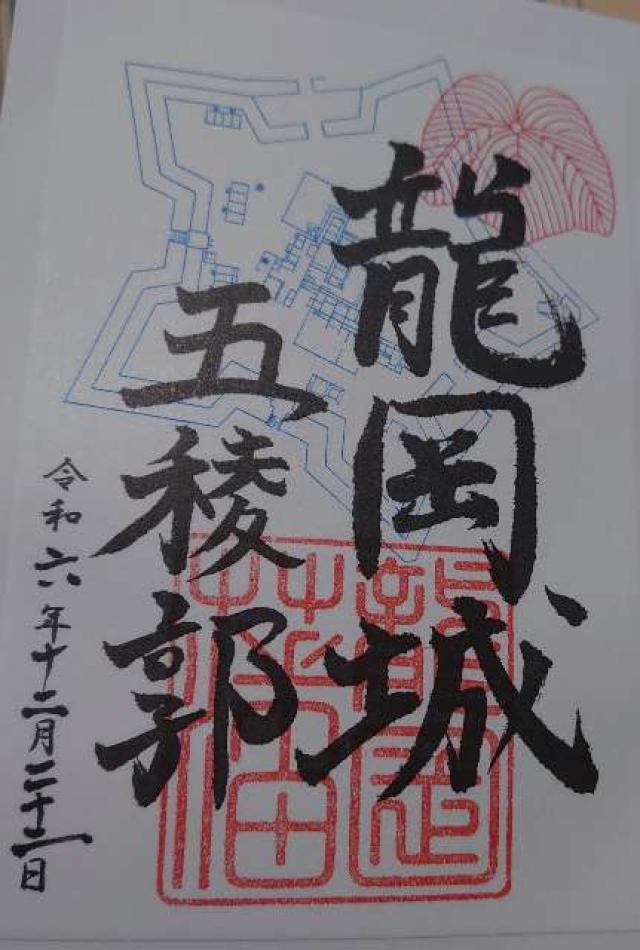 龍岡城
五稜郭
令和六年十二月二十一日